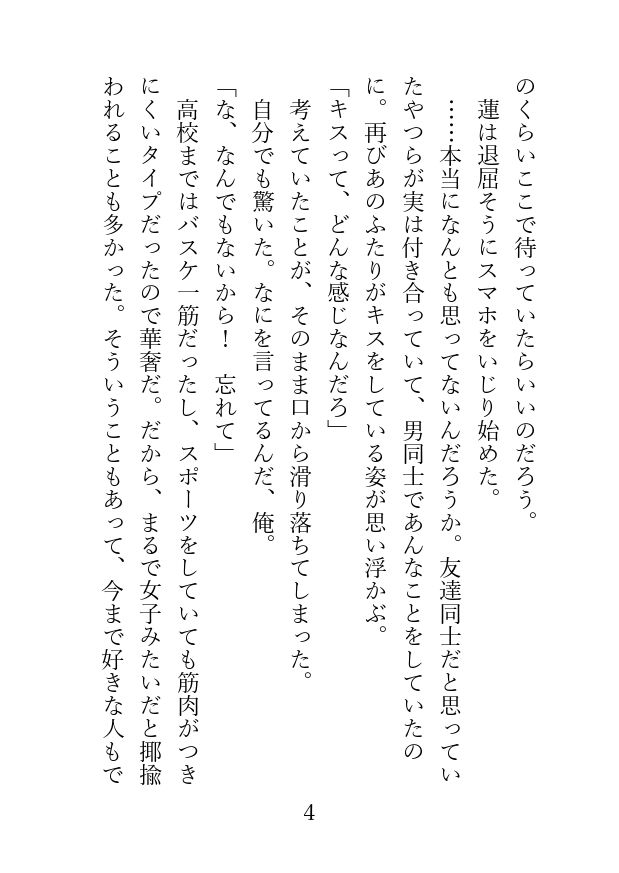 のくらいここで待っていたらいいのだろう。
　蓮は退屈そうにスマホをいじり始めた。
　……本当になんとも思ってないんだろうか。友達同士だと思ってい
たやつらが実は付き合っていて、男同士であんなことをしていたの
に。再びあのふたりがキスをしている姿が思い浮かぶ。
「キスって、どんな感じなんだろ」
　考えていたことが、そのまま口から滑り落ちてしまった。
　自分でも驚いた。なにを言ってるんだ、俺。
「な、なんでもないから！　忘れて」
　高校まではバスケ一筋だったし、スポーツをしていても筋肉がつき
にくいタイプだったので華奢だ。だから、まるで女子みたいだと揶揄
われることも多かった。そういうこともあって、今まで好きな人もで
4